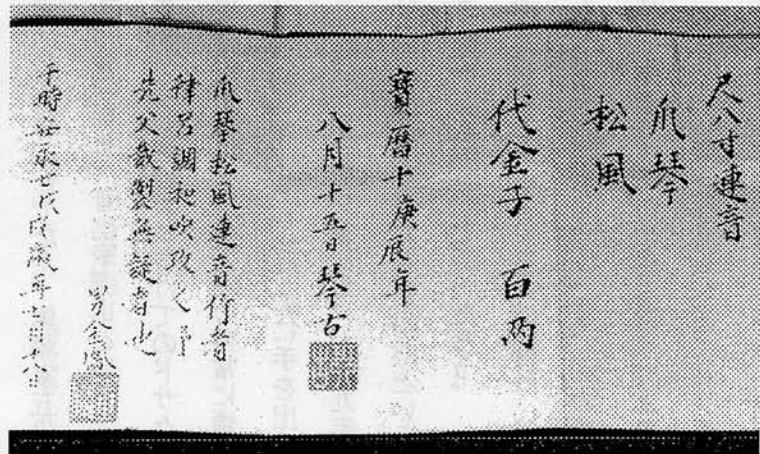 尺八寸連音
爪琴
松風
代金子 百両
寳暦十庚辰年
八月十五日 琴古
爪琴松風連音竹者
律呂調和吹攺之事
先父裁製無疑者也
男金鳳
于時安永七戊戌歳年 月十八日